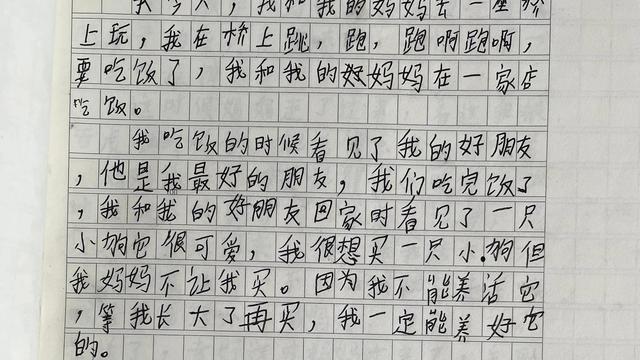 今天，我和我的妈妈去一座桥
上玩，我在桥上跳，跑，跑啊跑啊，
要吃饭了，我和我的好妈妈在一家店
吃饭。
我吃饭的时候看见了我的好朋友
，他是我最好的朋友，我们吃完饭了
，我和我的好朋友回家时看见了一只
小狗它很可爱，我很想买一只小狗但
我妈妈不让我买。因为我不能养活它
，等我长大了再买，我一定能养好它
的。